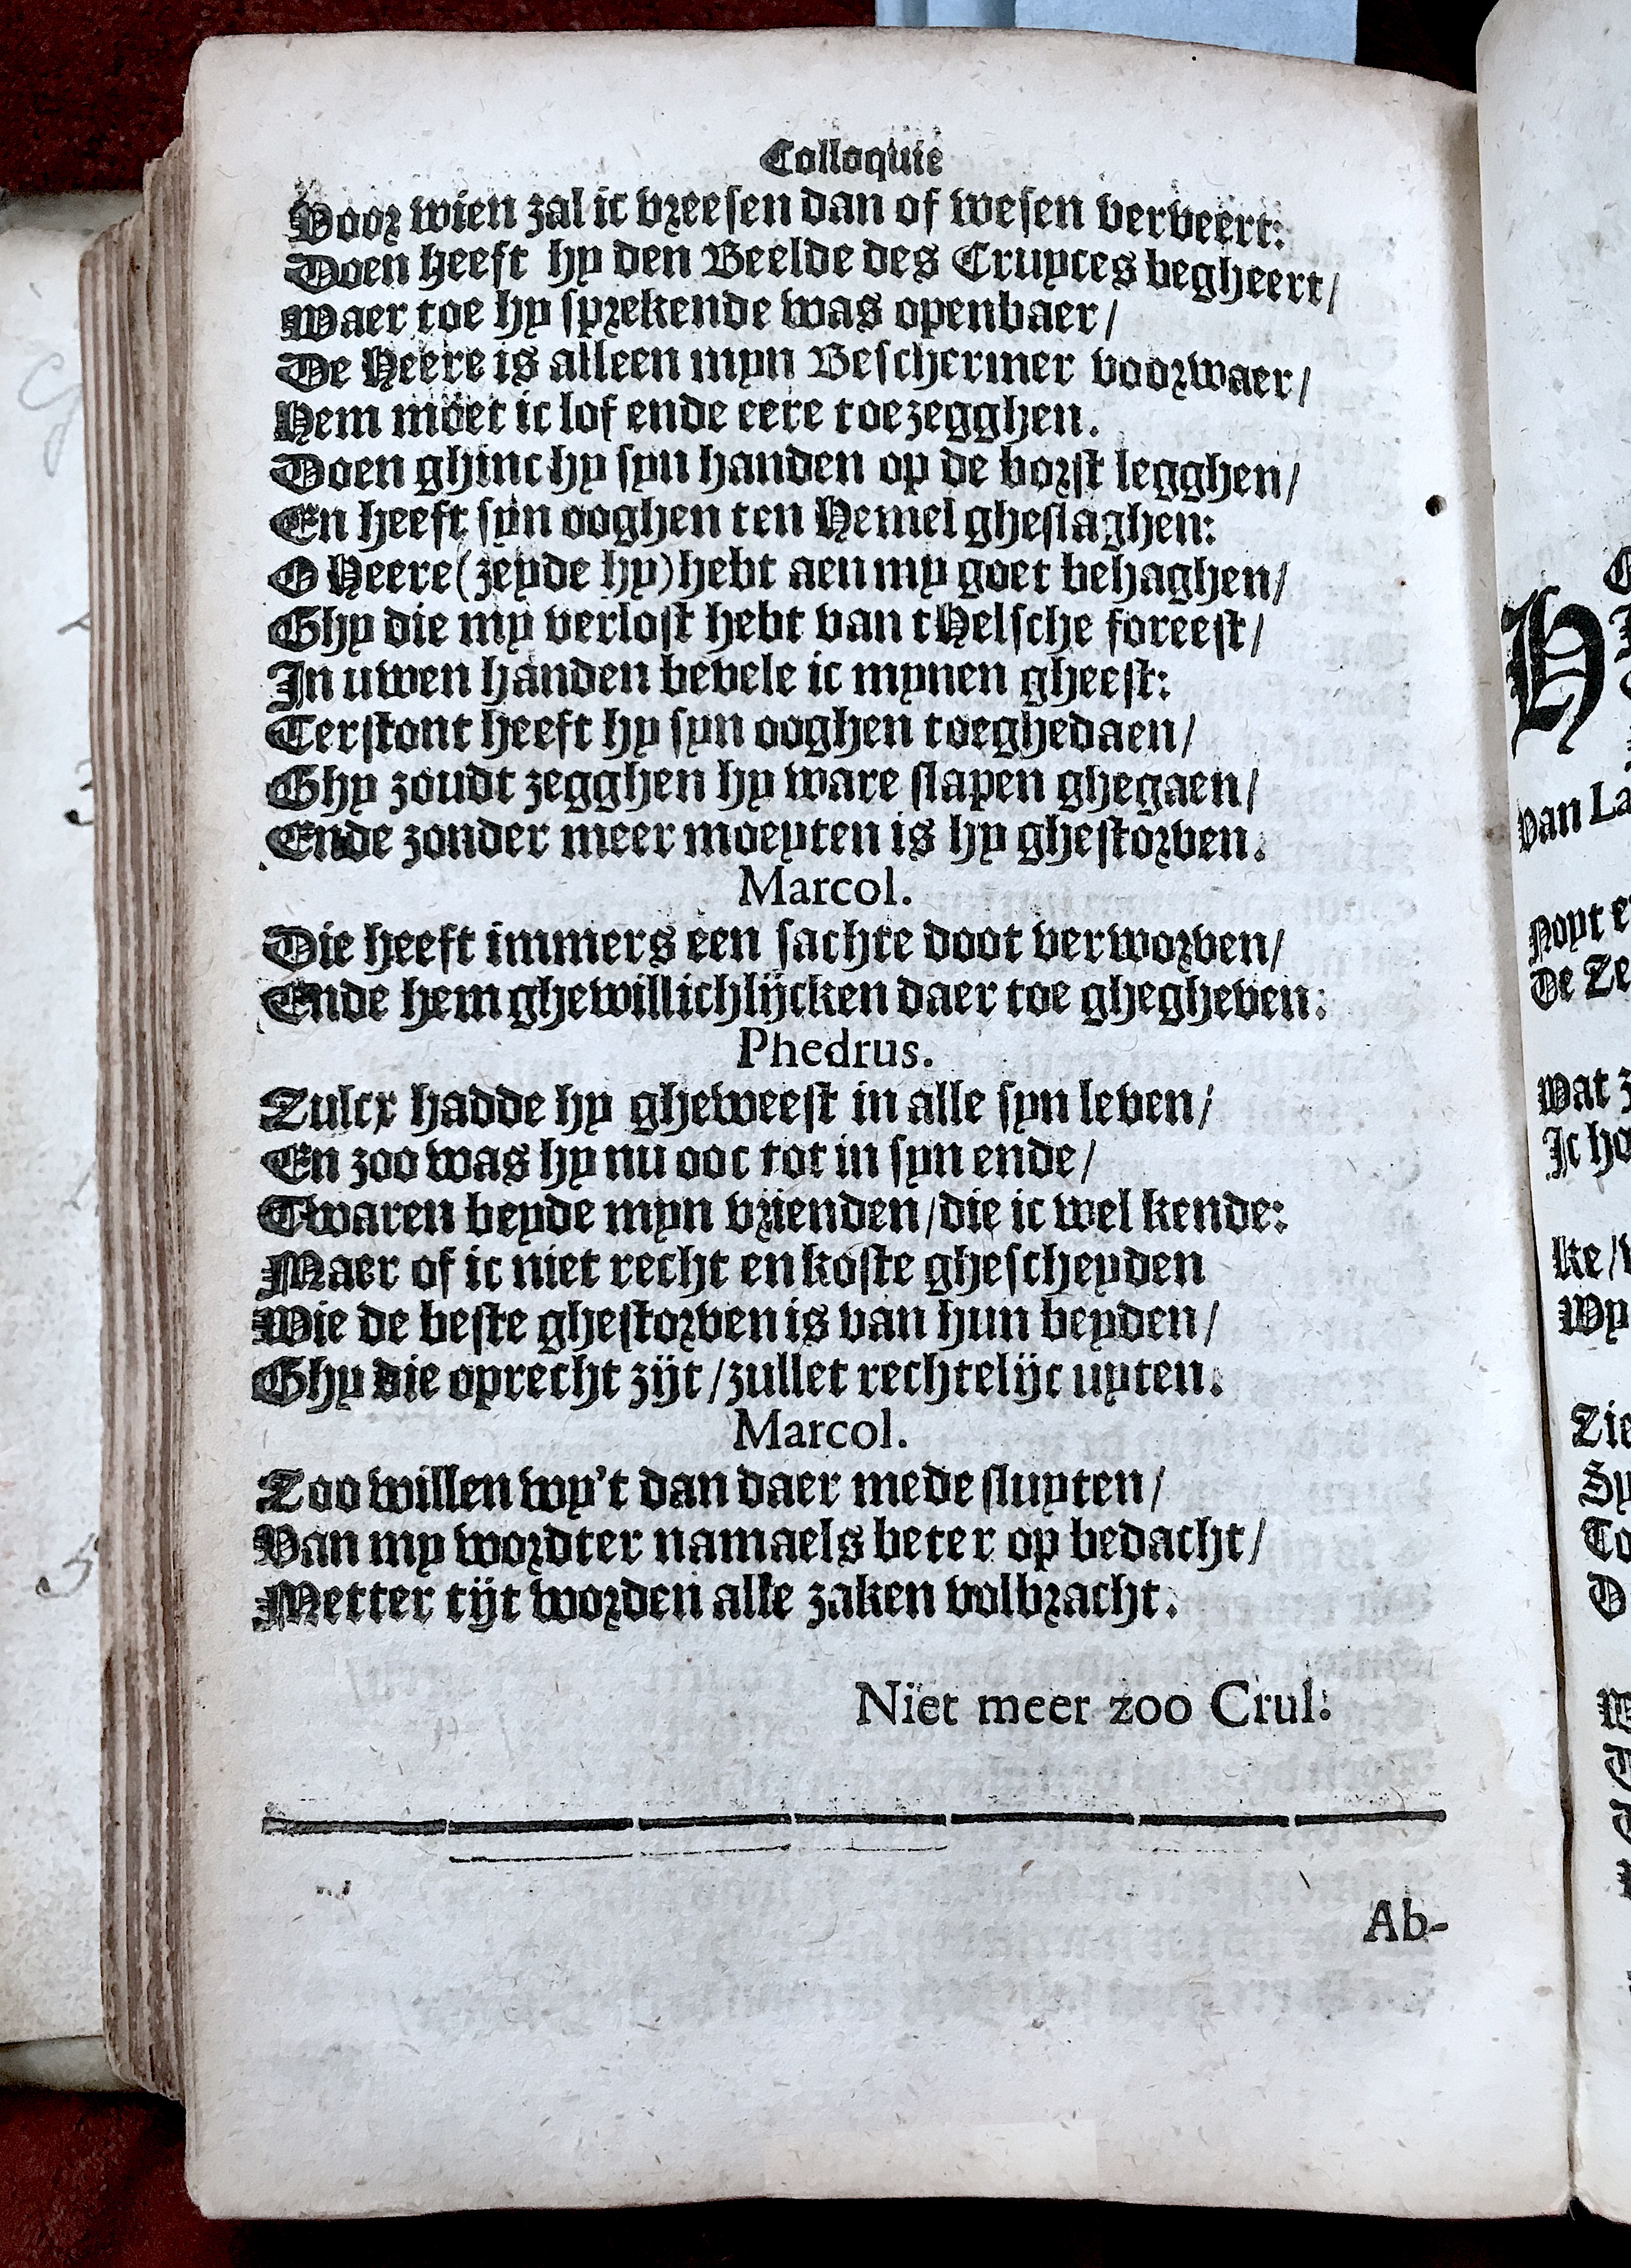 Colloquie
Voor wien zal ic vreesen dan of wesen verveert:
Doen heeft hy den Beelde des Cruyces begheert/
Waer toe hy sprekende was openbaer/
De Heere is alleen myn Beschermer voorwaer/
Hem moet ic lof ende eere toezegghen.
Doen ghinc hy syn handen op de borst legghen/
En heeft syn ooghen ten Hemel gheslaghen:
O Heere (zeyde hy) hebt aen my goet behaghen/
Ghy die my verlost hebt van tHelsche foreest/
In uwen handen bevele ic mynen gheest:
Terstont heeft hy syn ooghen toeghedaen/
Ghy zoudt zegghen hy ware slapen ghegaen/
Ende zonder meer moeyten is hy ghestorven.
Marcol.
Die heeft immers een sachte doot verworven/
Ende hem ghewillichlijcken daer toe ghegheven:
Phedrus.
Zulcx hadde hy gheweest in alle syn leven/
En zoo was hy nu ooc tot in syn ende/
Twaren beyde myn vrienden/die ic wel kende:
Maer of ic niet recht en koste ghescheyden
Wie de beste ghestorven is van hun beyden/
Ghy die oprecht zijt/zullet rechtelijc uyten.
Marcol.
Zoo willen wy't dan daer mede sluyten/
Van my wordter namaels beter op bedacht/
Metter tijt worden alle zaken volbracht.
Niet meer zoo Crul.
Ab-
H
van La
Noyt e
De Ze
Wat z
Ic ho
ke/
Wy
Zie
Sy
To